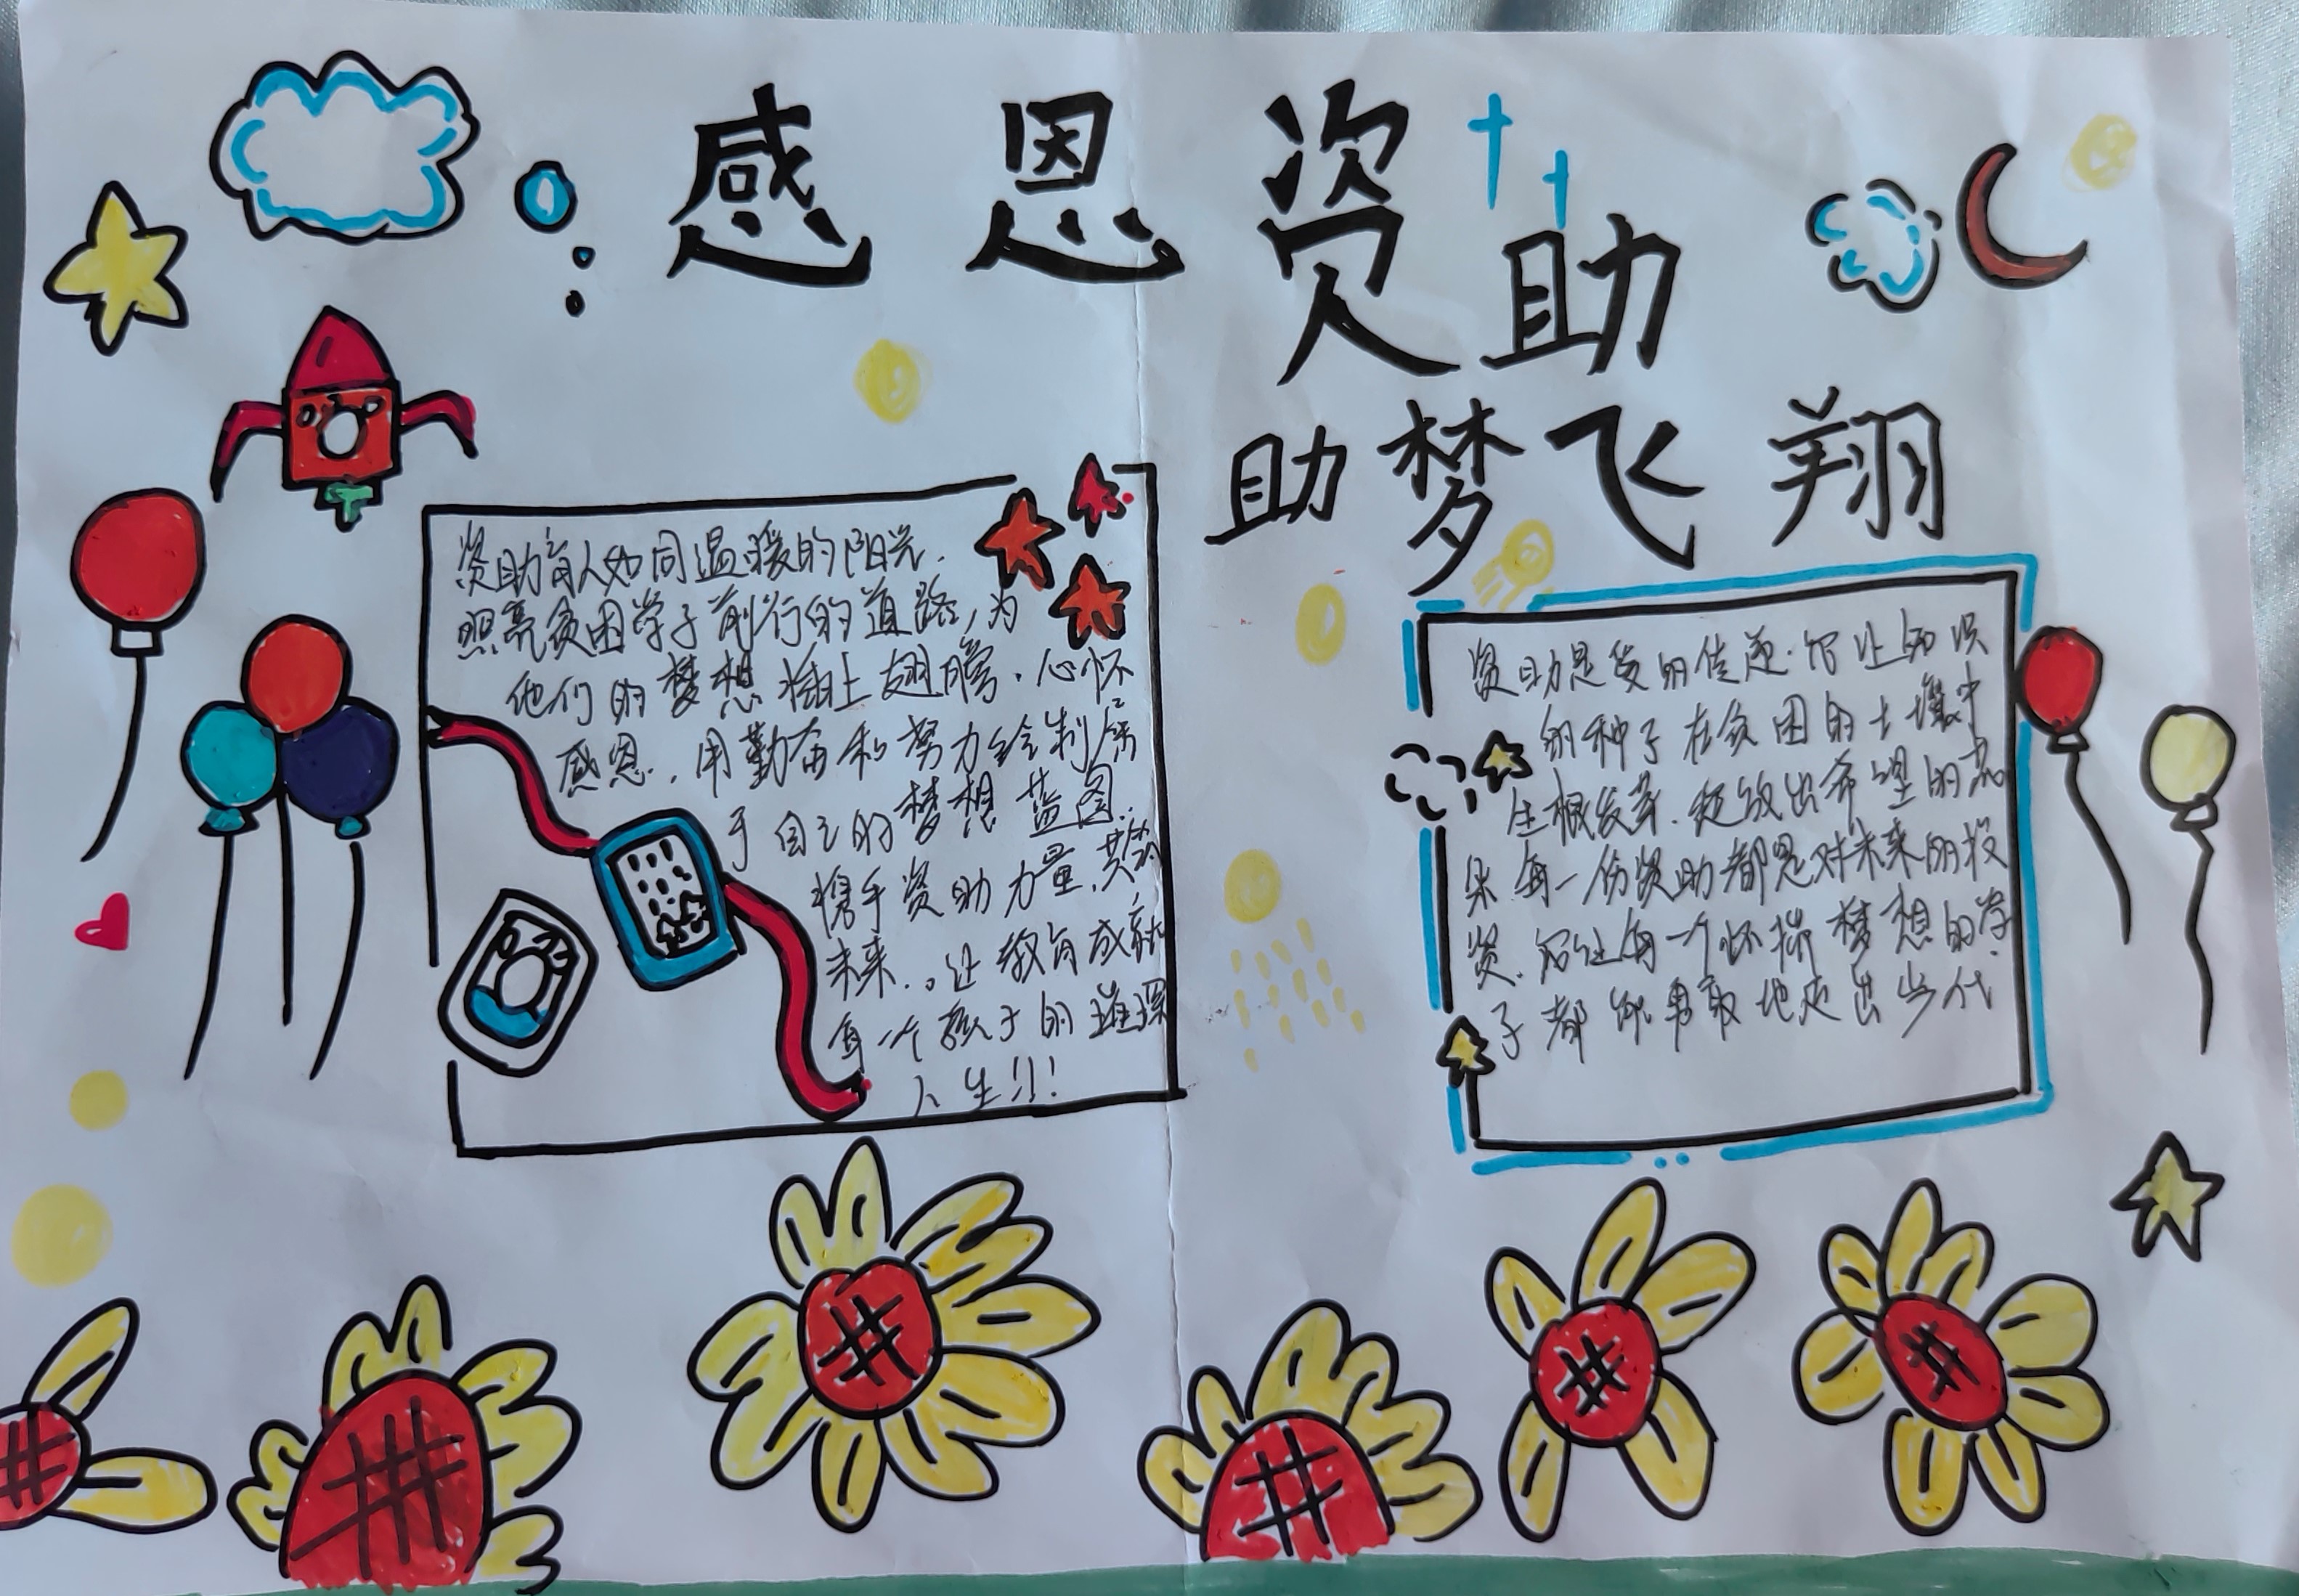 感恩资助
助梦飞翔
资助育人如同温暖的阳光.
照亮贫困学子前行的道路,为
他们的梦想插上翅膀.心怀
感恩.,用勤奋和努力绘制属
于自己的梦想蓝图.
携手资助力量,共绘
未来.。让教育成就
每一个孩子的璀璨
人生!!
资助是爱的传递.它让知识
的种子在贫困的土壤中
生根发芽.绽放出希望的
果每一份资助都是对未来的投
资.它让每一个怀揣梦想的学
子都能勇敢地走出当代